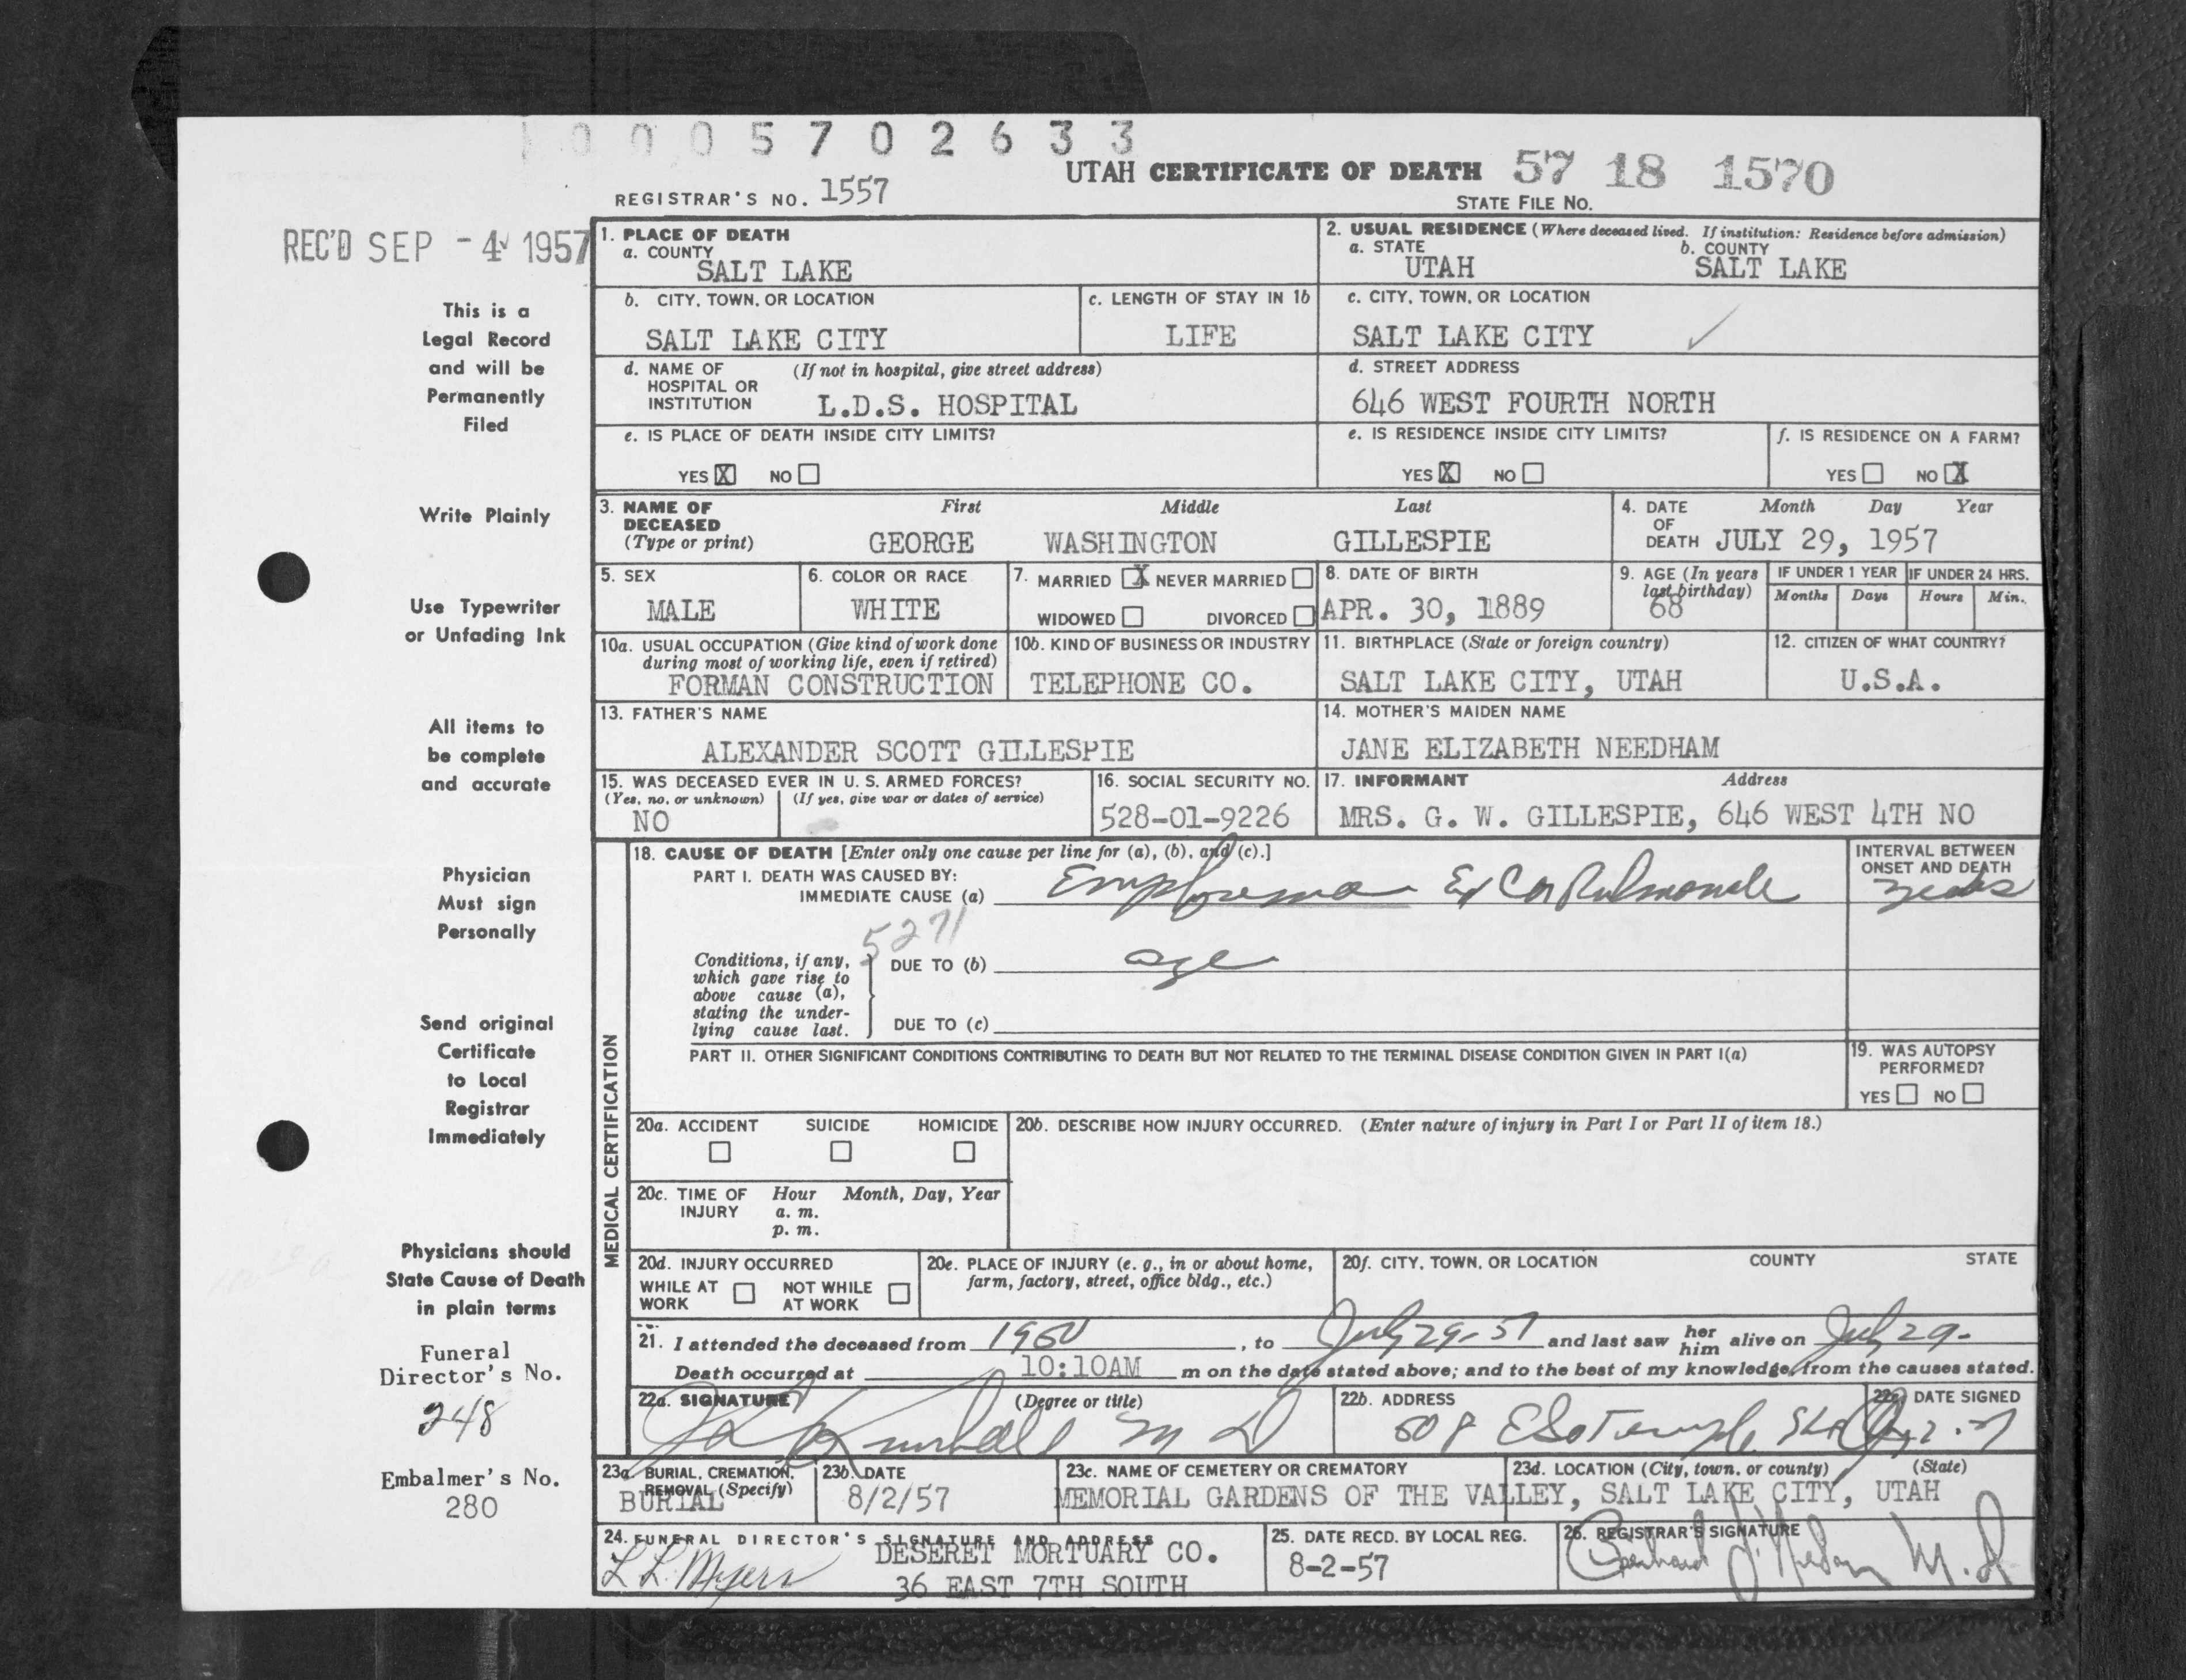 0005702633
UTAH CERTIFICATE OF DEATH 57 18 1570
REGISTRAR'S NO. 1557
STATE FILE NO.
REC'D SEP - 4 1957
This is a
Legal Record
and will be
Permanently
Filed
Write Plainly
Use Typewriter
or Unfading Ink
All items to
be complete
and accurate
Physician
Must sign
Personally
Send original
Certificate
to Local
Registrar
Immediately
Physicians should
State Cause of Death
in plain terms
Funeral
Director's No.
248
Embalmer's No.
280
1. PLACE OF DEATH
a. COUNTY
SALT LAKE
2. USUAL RESIDENCE (Where deceased lived. If institution: Residence before admission)
a. STATE b. COUNTY
UTAH SALT LAKE
b. CITY, TOWN, OR LOCATION
SALT LAKE CITY
c. LENGTH OF STAY IN 1b
LIFE
c. CITY, TOWN, OR LOCATION
SALT LAKE CITY
d. NAME OF (If not in hospital, give street address)
HOSPITAL OR
INSTITUTION L.D.S. HOSPITAL
d. STREET ADDRESS
646 WEST FOURTH NORTH
e. IS PLACE OF DEATH INSIDE CITY LIMITS?
YES X NO
e. IS RESIDENCE INSIDE CITY LIMITS?
YES X NO
f. IS RESIDENCE ON A FARM?
YES NO X
3. NAME OF First Middle Last
DECEASED
(Type or print) GEORGE WASHINGTON GILLESPIE
4. DATE Month Day Year
OF
DEATH JULY 29, 1957
5. SEX
MALE
6. COLOR OR RACE
WHITE
7. MARRIED X NEVER MARRIED
WIDOWED DIVORCED
8. DATE OF BIRTH
APR. 30, 1889
9. AGE (In years
last birthday)
68
IF UNDER 1 YEAR IF UNDER 24 HRS.
Months Days Hours Min.
10a. USUAL OCCUPATION (Give kind of work done
during most of working life, even if retired)
FORMAN CONSTRUCTION
10b. KIND OF BUSINESS OR INDUSTRY
TELEPHONE CO.
11. BIRTHPLACE (State or foreign country)
SALT LAKE CITY, UTAH
12. CITIZEN OF WHAT COUNTRY?
U.S.A.
13. FATHER'S NAME
ALEXANDER SCOTT GILLESPIE
14. MOTHER'S MAIDEN NAME
JANE ELIZABETH NEEDHAM
15. WAS DECEASED EVER IN U. S. ARMED FORCES?
(Yes, no, or unknown) (If yes, give war or dates of service)
NO
16. SOCIAL SECURITY NO.
528-01-9226
17. INFORMANT Address
MRS. G. W. GILLESPIE, 646 WEST 4TH NO
MEDICAL CERTIFICATION
18. CAUSE OF DEATH [Enter only one cause per line for (a), (b), and (c).]
PART I. DEATH WAS CAUSED BY:
IMMEDIATE CAUSE (a) Cor Pulmonale
INTERVAL BETWEEN
ONSET AND DEATH
years
5271
Conditions, if any,
which gave rise to
above cause (a),
stating the under-
lying cause last.
DUE TO (b) age
DUE TO (c)
PART II. OTHER SIGNIFICANT CONDITIONS CONTRIBUTING TO DEATH BUT NOT RELATED TO THE TERMINAL DISEASE CONDITION GIVEN IN PART I(a)
19. WAS AUTOPSY
PERFORMED?
YES NO
20a. ACCIDENT SUICIDE HOMICIDE
20b. DESCRIBE HOW INJURY OCCURRED. (Enter nature of injury in Part I or Part II of item 18.)
20c. TIME OF Hour Month, Day, Year
INJURY a. m.
p. m.
20d. INJURY OCCURRED
WHILE AT NOT WHILE
WORK AT WORK
20e. PLACE OF INJURY (e. g., in or about home,
farm, factory, street, office bldg., etc.)
20f. CITY, TOWN, OR LOCATION COUNTY STATE
21. I attended the deceased from 1950, to July 29-57 and last saw her him alive on July 29-
Death occurred at 10:10AM m on the date stated above; and to the best of my knowledge, from the causes stated.
22a. SIGNATURE (Degree or title)
Kimball M D
22b. ADDRESS
508 E So Temple SLC
22c. DATE SIGNED
23a. BURIAL, CREMATION,
REMOVAL (Specify)
BURIAL
23b. DATE
8/2/57
23c. NAME OF CEMETERY OR CREMATORY
23d. LOCATION (City, town, or county) (State)
MEMORIAL GARDENS OF THE VALLEY, SALT LAKE CITY, UTAH
24. FUNERAL DIRECTOR'S SIGNATURE AND ADDRESS
L L Myers DESERET MORTUARY CO.
36 EAST 7TH SOUTH
25. DATE RECD. BY LOCAL REG.
8-2-57
26. REGISTRAR'S SIGNATURE
M.D.